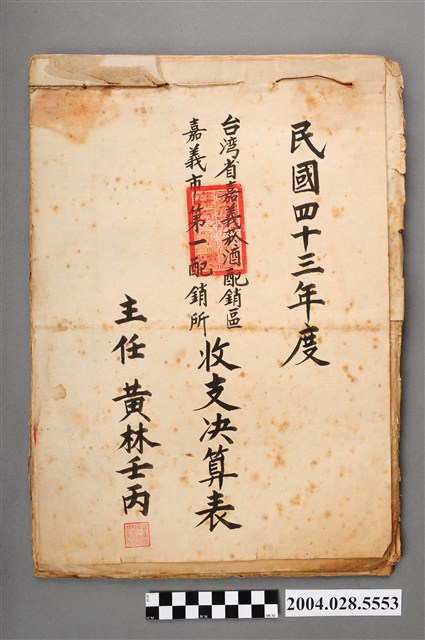 民國四十三年度
台湾省嘉義菸酒配銷區
嘉義市第一配銷所
收支决算表
主任 黄林壬丙
2004.028.5553